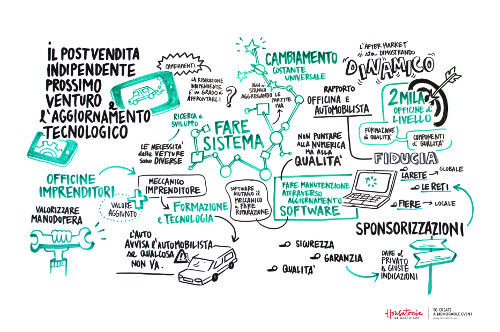 iL POSTVENDITA
INDIPENDENTE
PROSSIMO
VENTURO &
L'AGGIORNAMENTO
TECNOLOGICO
CAMBIAMENTI
LA RIPARAZIONE
INDIPENDENTE
È IN GRADO DI
AFFRONTARLI
?
RICERCA e
SVILUPPO
LE NECESSITÀ
delle VETTURE
sono DIVERSE
FARE
SISTEMA
CAMBIAMENTO
COSTANTE
UNIVERSALE
AGGREGANDO
le PARTITE
IVA
RAPPORTO
OFFICINA e
AUTOMOBILISTA
NON PUNTARE
ALLA NUMERICA
MA ALLA
QUALITÀ
L'AFTERMARKET
si sta DIMOSTRANDO
DINAMICO
2 MILA
OFFICINE di
LIVELLO
FORMAZIONE
di QUALITÀ
COMPONENTI
di QUALITÀ
FIDUCIA
LA RETE → GLOBALE
LE RETI
FIERE → LOCALE
SPONSORIZZAZIONI
DARE ai
PRIVATI le
GIUSTE
INDICAZIONI
OFFICINE
IMPRENDITORI
VALORIZZARE
MANODOPERA
VALORE
AGGIUNTO
MECCANICO
IMPRENDITORE
FORMAZIONE
e TECNOLOGIA
SOFTWARE
AIUTANO il
MECCANICO
a FARE
RIPARAZIONE
FARE MANUTENZIONE
ATTRAVERSO
AGGIORNAMENTO
SOFTWARE
L'AUTO
AVVISA l'AUTOMOBILISTA
se QUALCOSA
NON VA.
SICUREZZA
GARANZIA
QUALITÀ
Housatonic
TO CREATE
A MEMORABLE EVENT